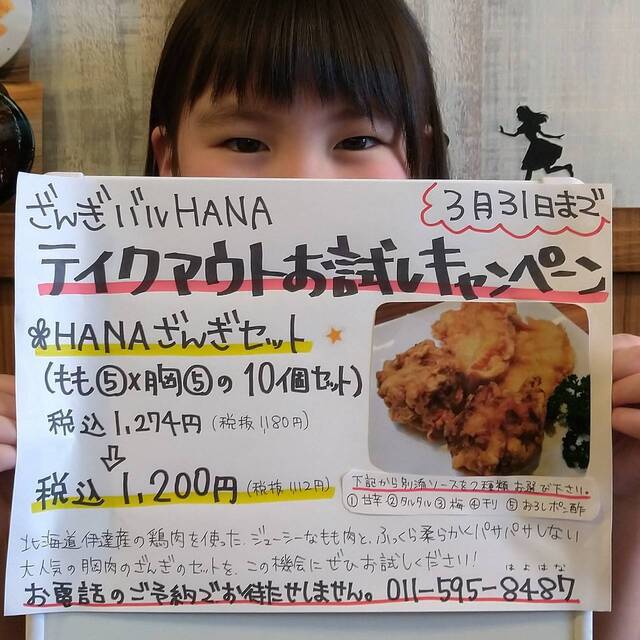 ざんぎバルHANA
3月31日まで
テイクアウトお試しキャンペーン
❀HANAざんぎセット
(もも⑤×胸⑤の10個セット)
税込1,274円(税抜1,180円)
⇩
税込1,200円(税抜1,112円)
下記から別添ソースを2種類お選び下さい。
①甘辛②タルタル③梅④チリ⑤おろしポン酢
北海道伊達産の鶏肉を使った、ジューシーなもも肉と、ふっくら柔らかくパサパサしない
大人気の胸肉のざんぎのセットを、この機会にぜひお試しください!
お電話のご予約でお待たせしません。011-595-8487
はよはな